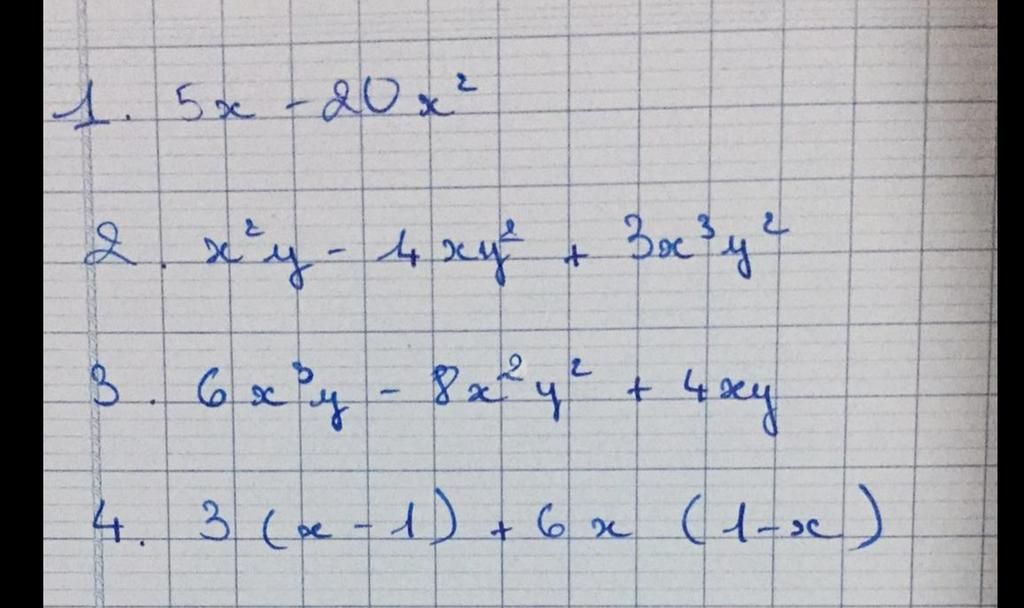 1. 5x - 20x²
2. x²y - 4xy² + 3x³y²
3. 6x³y - 8x²y² + 4xy
4. 3 (x - 1) + 6x (1-x)